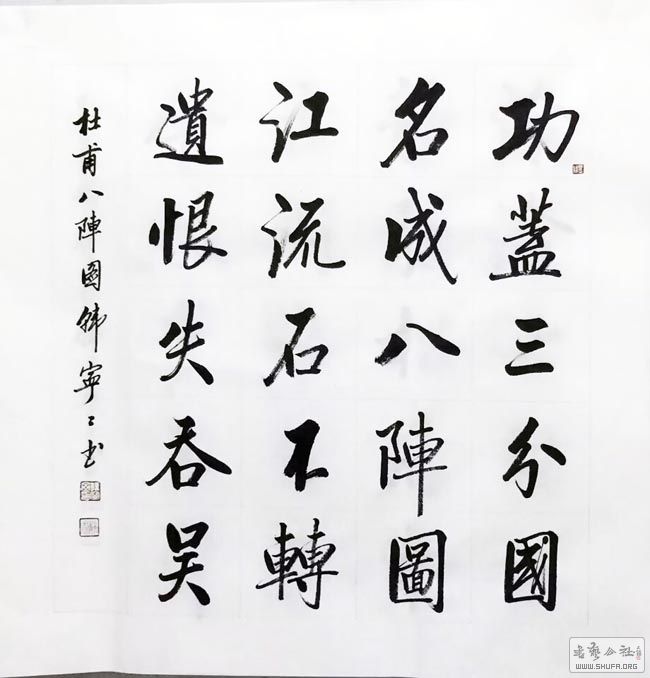 功蓋三分國
名成八陣圖
江流石不轉
遺恨失吞吴
杜甫八陣圖韩寧〻书
书艺公社
WWW.SHUFA.ORG